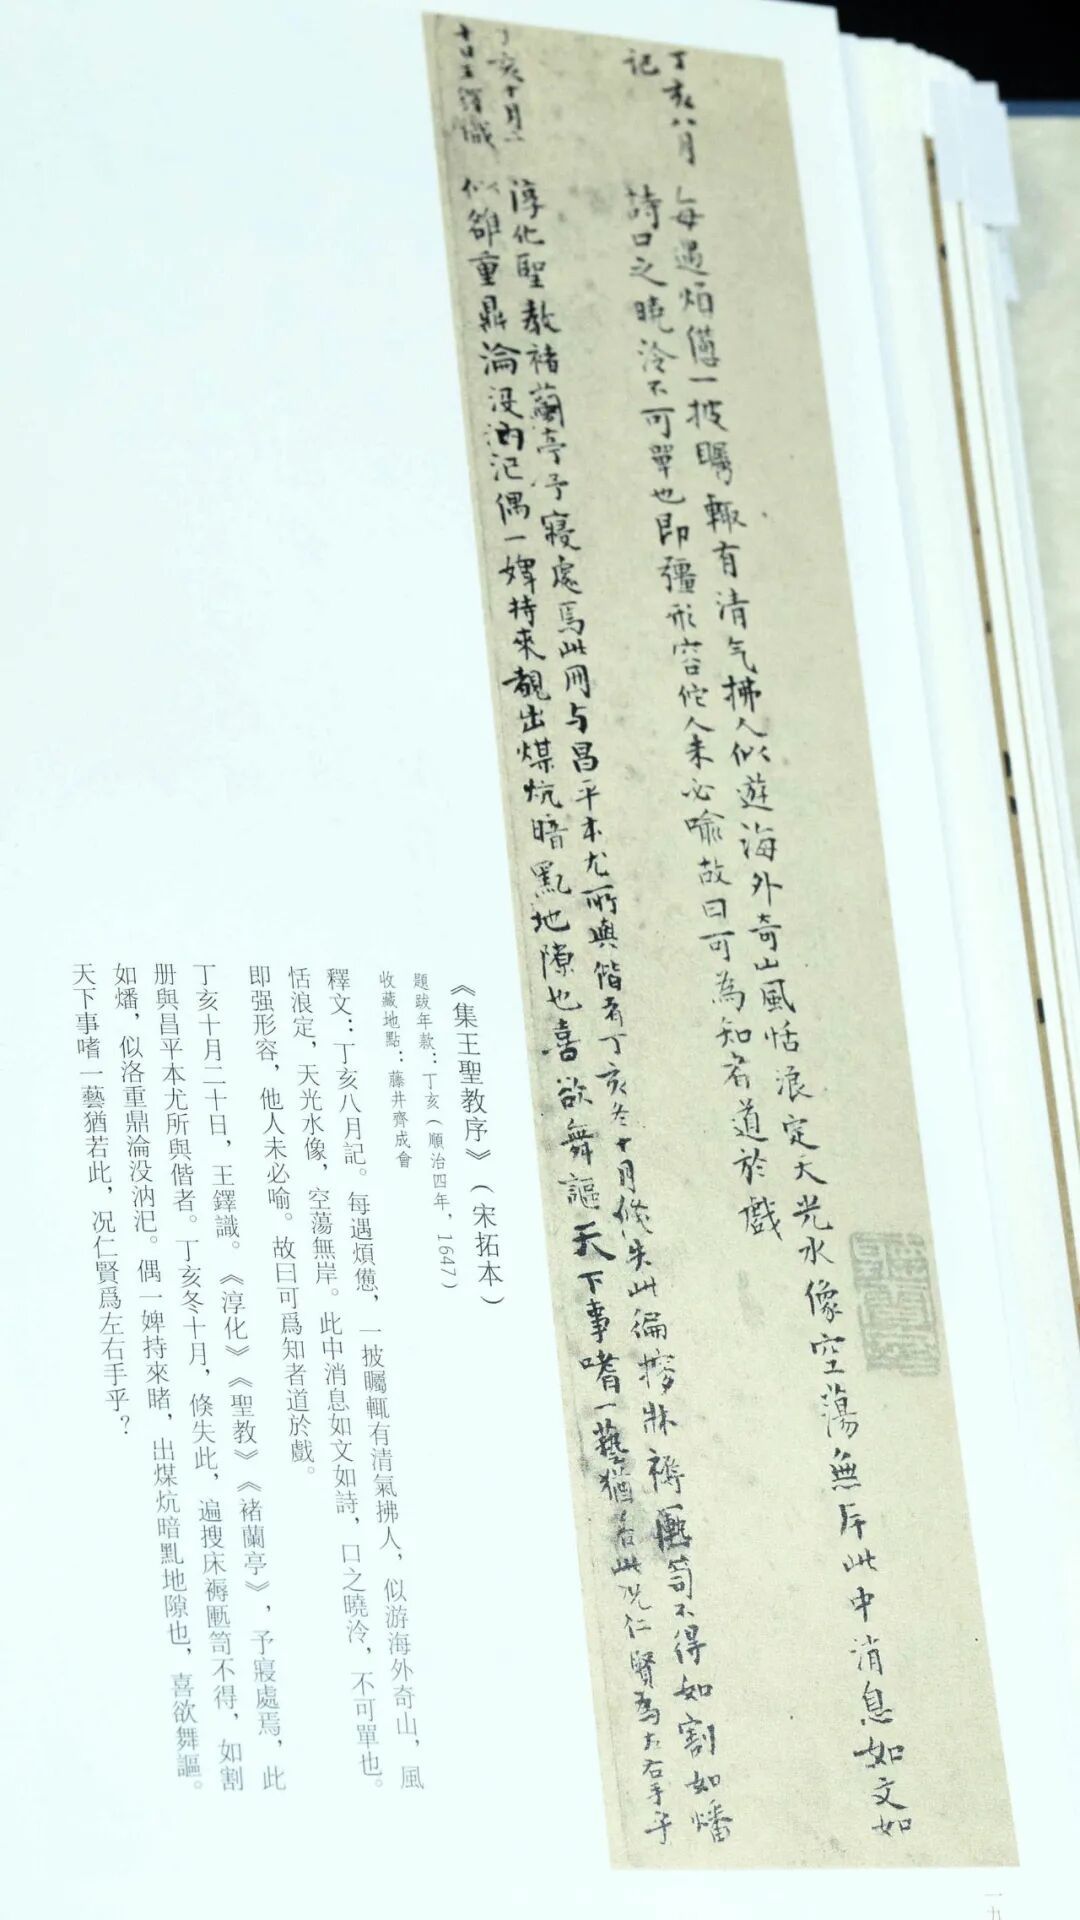 丁亥八月
記
每遇煩憊一披矚輒有清气拂人似遊海外奇山風恬浪定天光水像空蕩無岸此中消息如文如
詩口之曉泠不可單也即彊形容佗人未必喻故曰可為知者道於戲
丁亥十月二
十日王鐸識
淳化聖教褚蘭亭予寢處焉此冊与昌平本尤所與偕者丁亥冬十月倏失此徧搜牀褥匭笥不得如割如燔
似雒重鼎淪沒汭汜偶一婢持來覩出煤炕暗黑地隙也喜欲舞謳天下事嗜一藝猶若此况仁賢為左右手乎
《集王聖教序》（宋拓本）
題跋年款：丁亥（順治四年，1647）
收藏地點：藤井齊成會
釋文：丁亥八月記。每遇煩憊，一披矚輒有清氣拂人，似游海外奇山，風
恬浪定，天光水像，空蕩無岸。此中消息如文如詩，口之曉泠，不可單也。
即强形容，他人未必喻。故曰可爲知者道於戲。
丁亥十月二十日，王鐸識。《淳化》《聖教》《褚蘭亭》，予寢處焉，此
册與昌平本尤所與偕者。丁亥冬十月，倏失此，遍搜床褥匭笥不得，如割
如燔，似洛重鼎淪没汭汜。偶一婢持來睹，出煤炕暗黑地隙也，喜欲舞謳。
天下事嗜一藝猶若此，况仁賢爲左右手乎？
一九